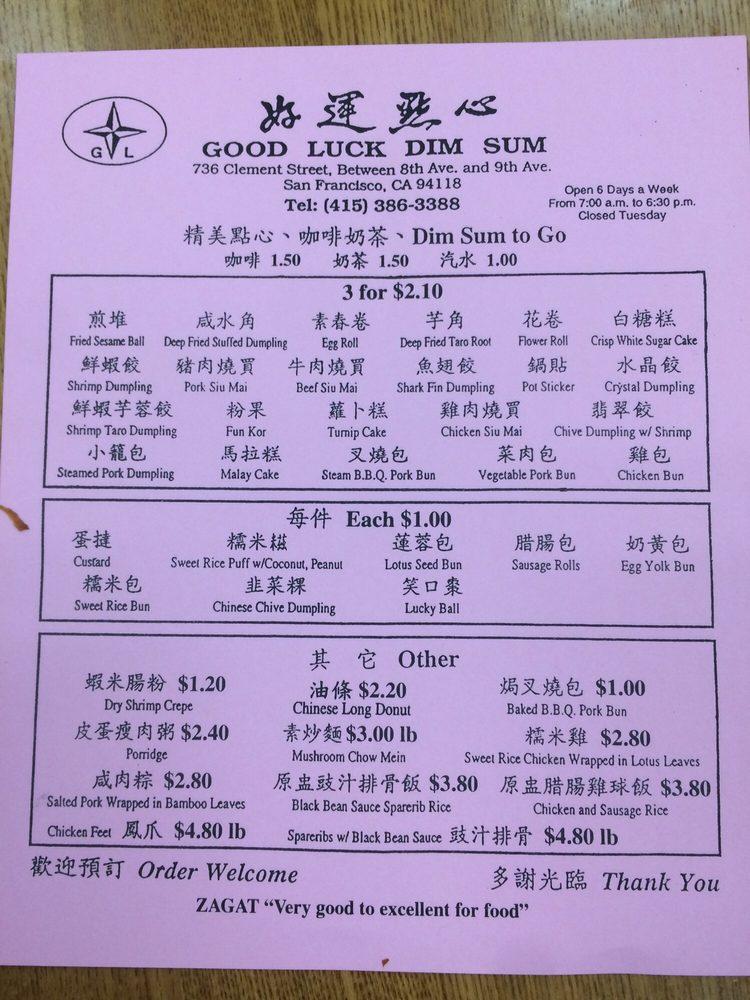 好運點心
G L
GOOD LUCK DIM SUM
736 Clement Street, Between 8th Ave. and 9th Ave.
San Francisco, CA 94118
Tel: (415) 386-3388
Open 6 Days a Week
From 7:00 a.m. to 6:30 p.m.
Closed Tuesday
精美點心、咖啡奶茶、Dim Sum to Go
咖啡 1.50 奶茶 1.50 汽水 1.00
3 for $2.10
煎堆 咸水角 素春卷 芋角 花卷 白糖糕
Fried Sesame Ball Deep Fried Stuffed Dumpling Egg Roll Deep Fried Taro Root Flower Roll Crisp White Sugar Cake
鮮蝦餃 豬肉燒買 牛肉燒買 魚翅餃 鍋貼 水晶餃
Shrimp Dumpling Pork Siu Mai Beef Siu Mai Shark Fin Dumpling Pot Sticker Crystal Dumpling
鮮蝦芋蓉餃 粉果 蘿卜糕 雞肉燒買 翡翠餃
Shrimp Taro Dumpling Fun Kor Turnip Cake Chicken Siu Mai Chive Dumpling w/ Shrimp
小籠包 馬拉糕 叉燒包 菜肉包 雞包
Steamed Pork Dumpling Malay Cake Steam B.B.Q. Pork Bun Vegetable Pork Bun Chicken Bun
每件 Each $1.00
蛋撻 糯米糍 蓮蓉包 腊腸包 奶黃包
Custard Sweet Rice Puff w/Coconut, Peanut Lotus Seed Bun Sausage Rolls Egg Yolk Bun
糯米包 韭菜粿 笑口棗
Sweet Rice Bun Chinese Chive Dumpling Lucky Ball
其它 Other
蝦米腸粉 $1.20 油條 $2.20 焗叉燒包 $1.00
Dry Shrimp Crepe Chinese Long Donut Baked B.B.Q. Pork Bun
皮蛋瘦肉粥 $2.40 素炒麵 $3.00 lb 糯米雞 $2.80
Porridge Mushroom Chow Mein Sweet Rice Chicken Wrapped in Lotus Leaves
咸肉粽 $2.80 原盅豉汁排骨飯 $3.80 原盅腊腸雞球飯 $3.80
Salted Pork Wrapped in Bamboo Leaves Black Bean Sauce Sparerib Rice Chicken and Sausage Rice
Chicken Feet 鳳爪 $4.80 lb Spareribs w/ Black Bean Sauce 豉汁排骨 $4.80 lb
歡迎預訂 Order Welcome 多謝光臨 Thank You
ZAGAT “Very good to excellent for food”